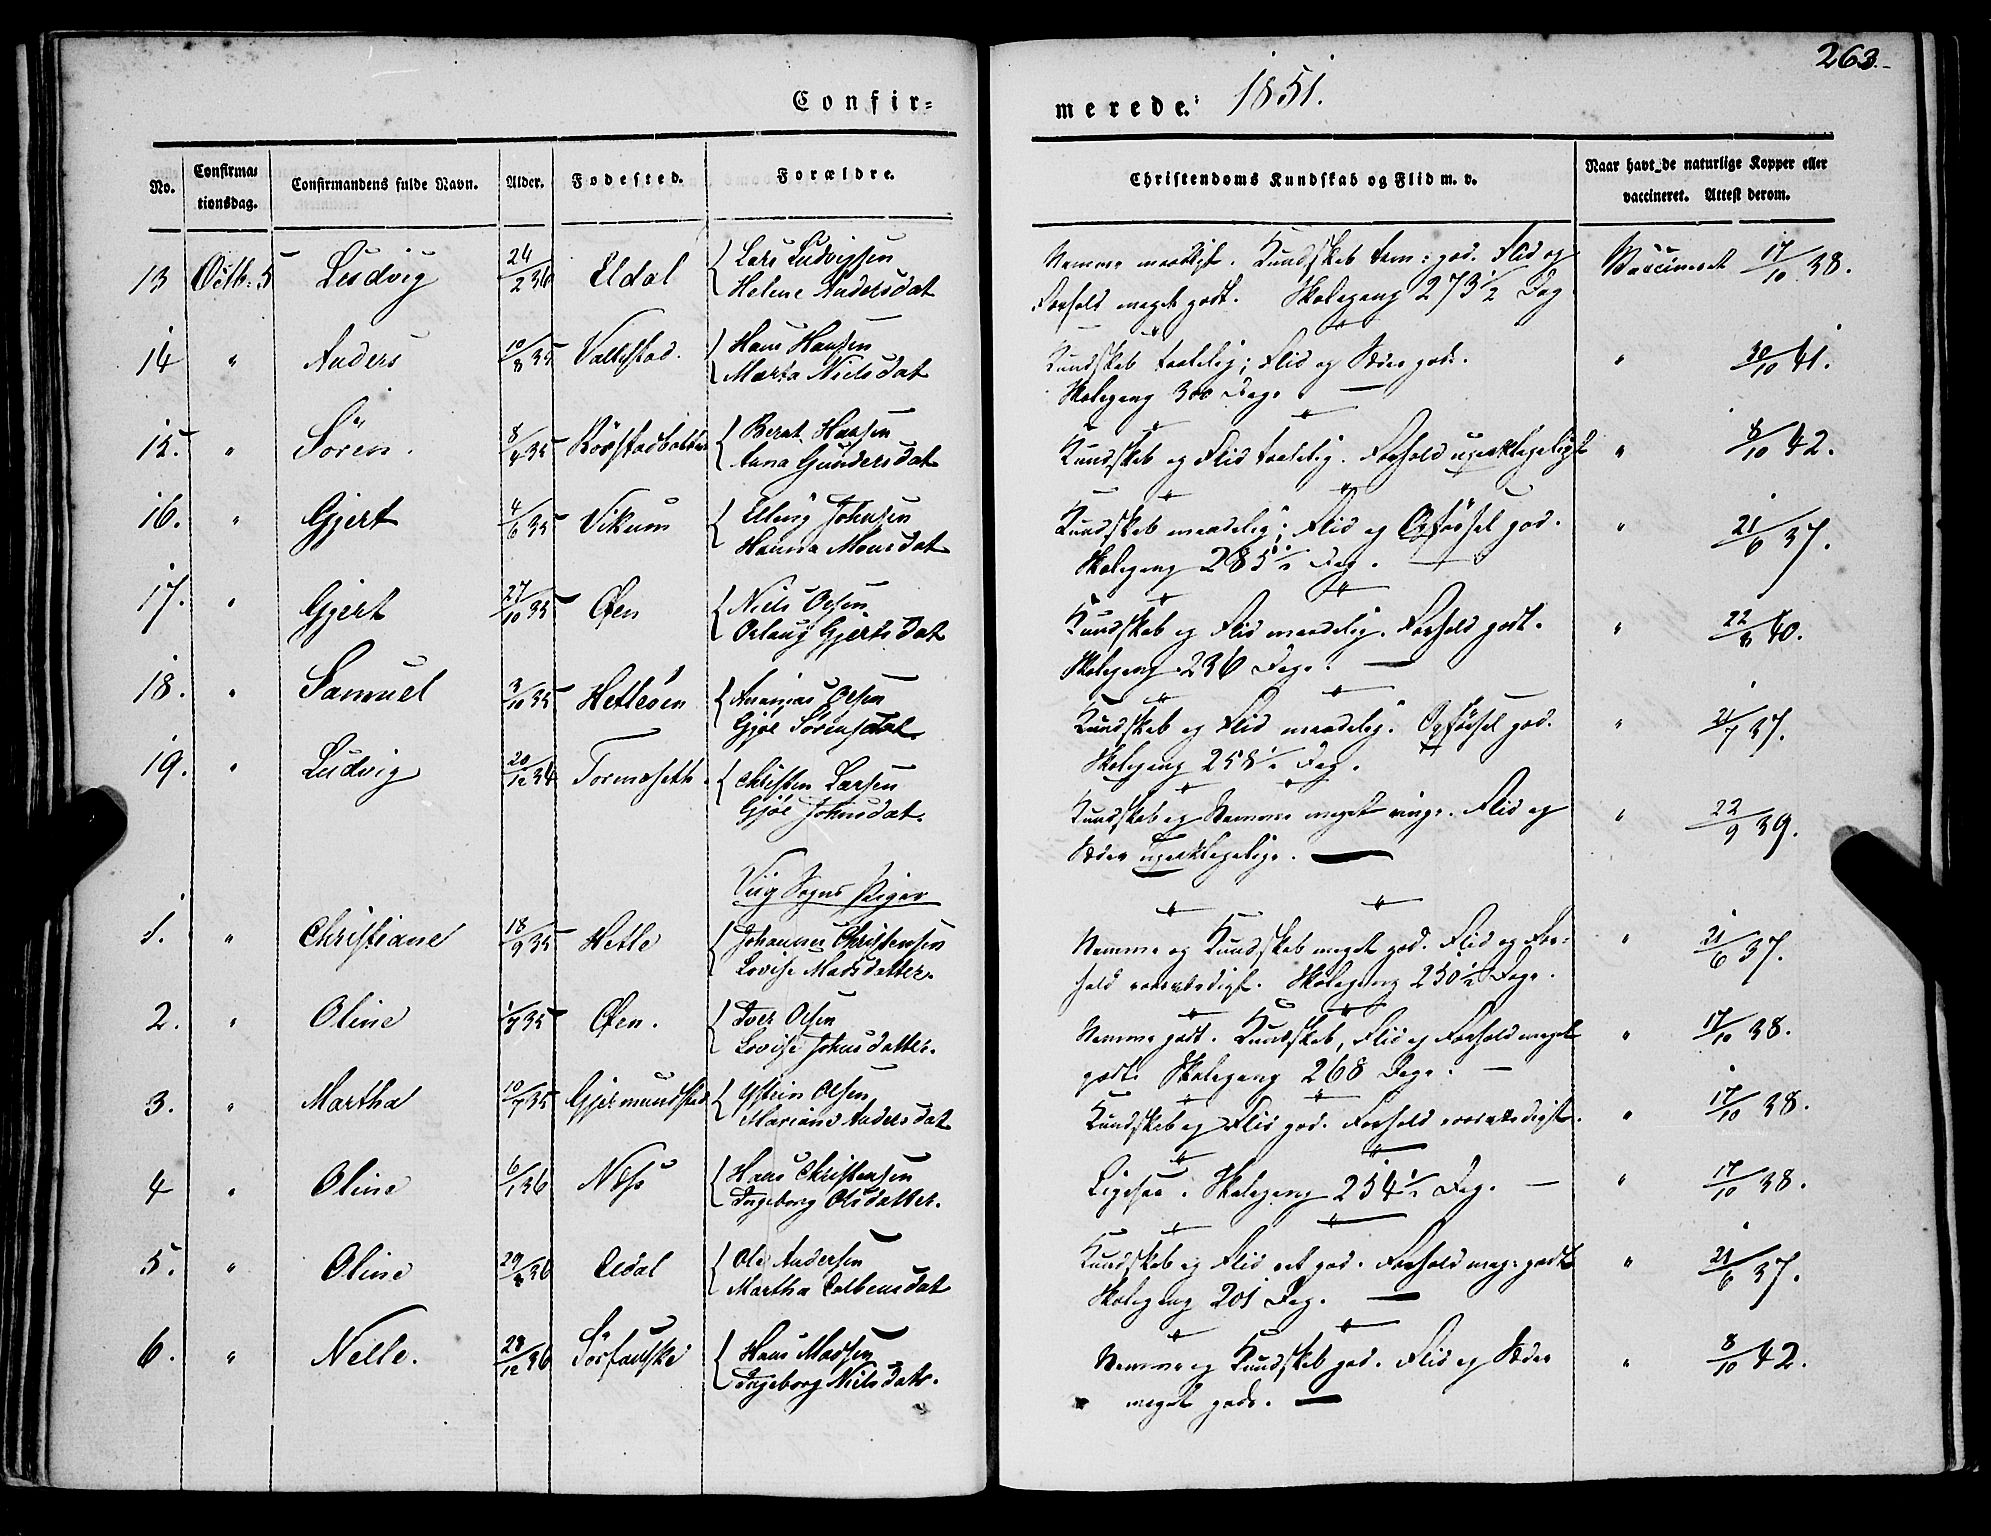 263.
Confir-
merede. 1851.
No.
Confirma-
tionsdag.
Confirmandens fulde Navn.
Alder.
Fodested.
Forældre.
Christendoms Kundskab og Flid m. v.
Naar havt de naturlige Kopper eller
vaccineret. Attest derom.
13 Octb: 5 Ludvig 24/2 36 Eldal { Lars Ludvigsen
Helene Andersdat
Nemme maadeligt. Kundskab tem: god. Flid og
Forhold meget godt. Skolegang 273 1/2 Dag
Vaccineret 17/10 38.
14 " Anders 10/8 35 Valkstad. { Hans Hansen
Marta Nielsdat
Kundskab taalelig; Flid og Sæder gode.
Skolegang 300 Dage —
" 30/10 41.
15. " Sören. 8/4 35 { Bernt Hansen
Anna Gundersdat
Kundskab og Flid taalelig. Forhold upaaklageligt
" 8/10 42.
16. " Gjert 4/6 35 Vikum { Elling Johnsen
Hanna Monsdat
Kundskab maadelig; Flid og Opförsel god.
Skolegang 285 1/2 Dag. —
" 21/6 37.
17. " Gjert 27/10 35 Øen { Niels Olsen
Oelaug Gjertsdat
Kundskab og Flid maadelig. Forhold godt.
Skolegang 236 Dage. —
" 22/8 40.
18. " Samuel 3/10 35 Hetleöen { Ananias Olsen
Gjöe Sörensdat.
Kundskab og Flid maadelig. Opförsel god.
Skolegang 258 1/2 Dag.
" 21/7 37.
19. " Ludvig 20/12 34 Tormoseth. { Christen Larsen
Gjöe Johnsdat.
Kundskab og Nemme meget ringe. Flid og
Sæder upaaklagelige. —
" 22/9 39.
Viig Sogns Piger
1. " Christiane 18/9 35 Hetle { Johannes Christensen
Lovise Madsdatter.
Nemme og Kundskab meget god. Flid og For-
hold roesværdigt. Skolegang 250 1/2 Dage.
" 21/6 37.
2. " Oline 1/7 35 Øen. { Iver Olsen
Lovise Johnsdatter.
Nemme godt. Kundskab, Flid og Forhold meget
godt. Skolegang 268 Dage. —
" 17/10 38.
3. " Martha 10/7 35 Gjermundstad { Östein Olsen
Mariane Andersdat
Kundskab og Flid god. Forhold roesværdigt.
" 17/10 38.
4 " Oline 6/1 36 Næs { Hans Christensen
Ingeborg Olsdatter.
Ligesaa. Skolegang 254 1/2 Dag. —
" 17/10 38.
5. " Oline 36 Eldal { Ole Andersen
Martha Colbensdat
Kundskab og Flid ret god. Forhold meg: godt
Skolegang 201 Dag. —
" 21/6 37.
6. " Nelle. 28/12 36 Sörfauske { Hans Madsen
Ingeborg Nielsdatr.
Nemme og Kundskab god. Flid og Sæder
meget gode. —
" 8/10 42.